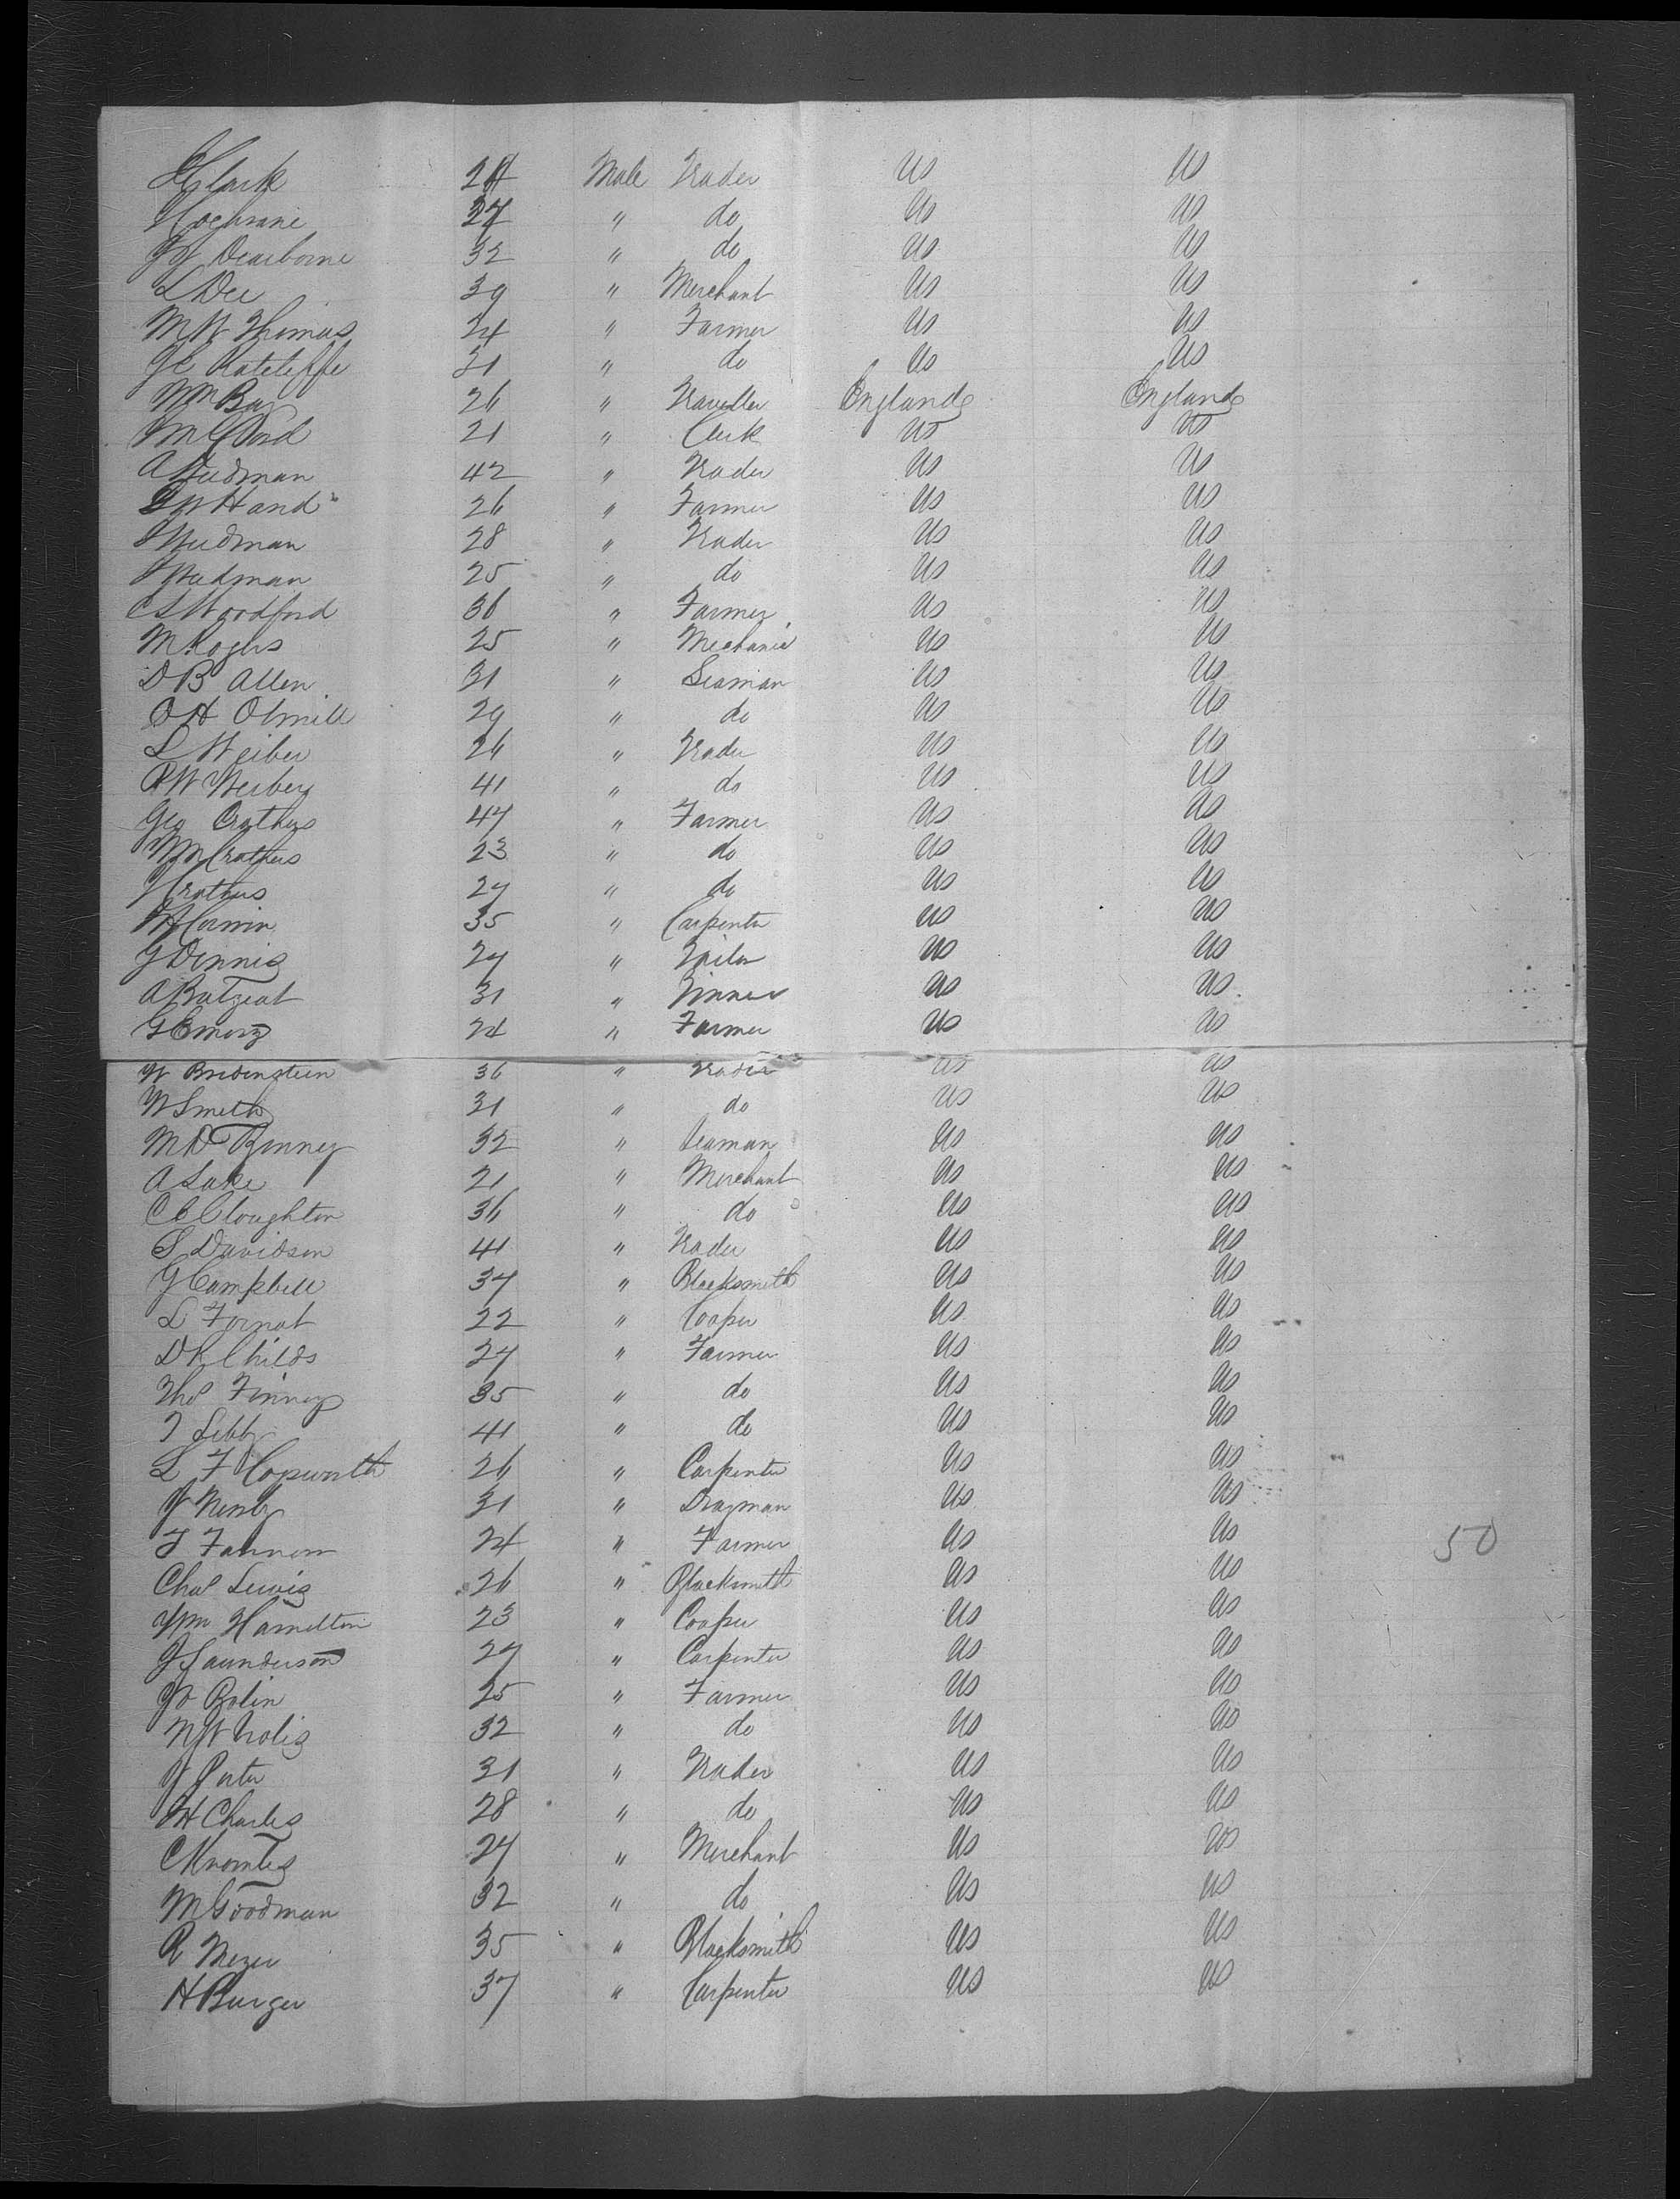 Clark 24 Male Trader US US
Cochrane 27 " do US US
J W Dearborne 32 " do US US
L Dee 39 " Merchant US US
M W Thomas 24 " Farmer US US
J C Ratcliffe 31 " do US US
Wm Bay 26 " Traveller England England
21 " Clerk US US
A Weedman 42 " Trader US US
G W Hand 26 " Farmer US US
J Weedman 28 " Trader US US
J Weedman 25 " do US US
C S Woodford 36 " Farmer US US
M Rogers 25 " Mechanic US US
D B Allen 31 " Seaman US US
O H Olmill 29 " do US US
L Weiber 26 " Trader US US
R W Weiber 41 " do US US
Geo Crathers 47 " Farmer US US
Wm Crathers 23 " do US US
J Crathers 27 " do US US
35 " Carpenter US US
G Dennis 27 " US US
A Batzeat 31 " Tinner US US
G Emory 24 " Farmer US US
W Bridenstein 36 " Trader US US
W Smith 31 " do US US
M D Binney 32 " Seaman US US
A Lake 21 " Merchant US US
C C Cloughton 36 " do US US
S Davidson 41 " Trader US US
G Campbell 37 " Blacksmith US US
L Fornat 22 " Cooper US US
D K Childs 27 " Farmer US US
Tho Finney 35 " do US US
T Libby 41 " do US US
L F Copworth 26 " Carpenter US US
31 " Drayman US US
F Fahnom 24 " Farmer US US 50
Chas Lewis 26 " Blacksmith US US
Wm Hamilton 23 " Cooper US US
J Saunderson 27 " Carpenter US US
W Bolin 25 " Farmer US US
32 " do US US
W Porter 31 " Trader US US
H Charles 28 " do US US
27 " Merchant US US
M Goodman 32 " do US US
R Mezer 35 " Blacksmith US US
H Burger 37 " Carpenter US US